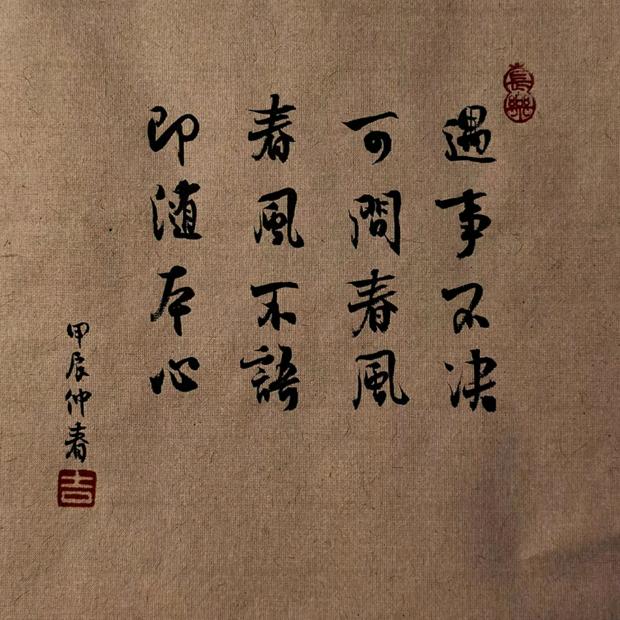 長樂
遇事不决
可問春風
春風不語
即随本心
甲辰仲春
吉